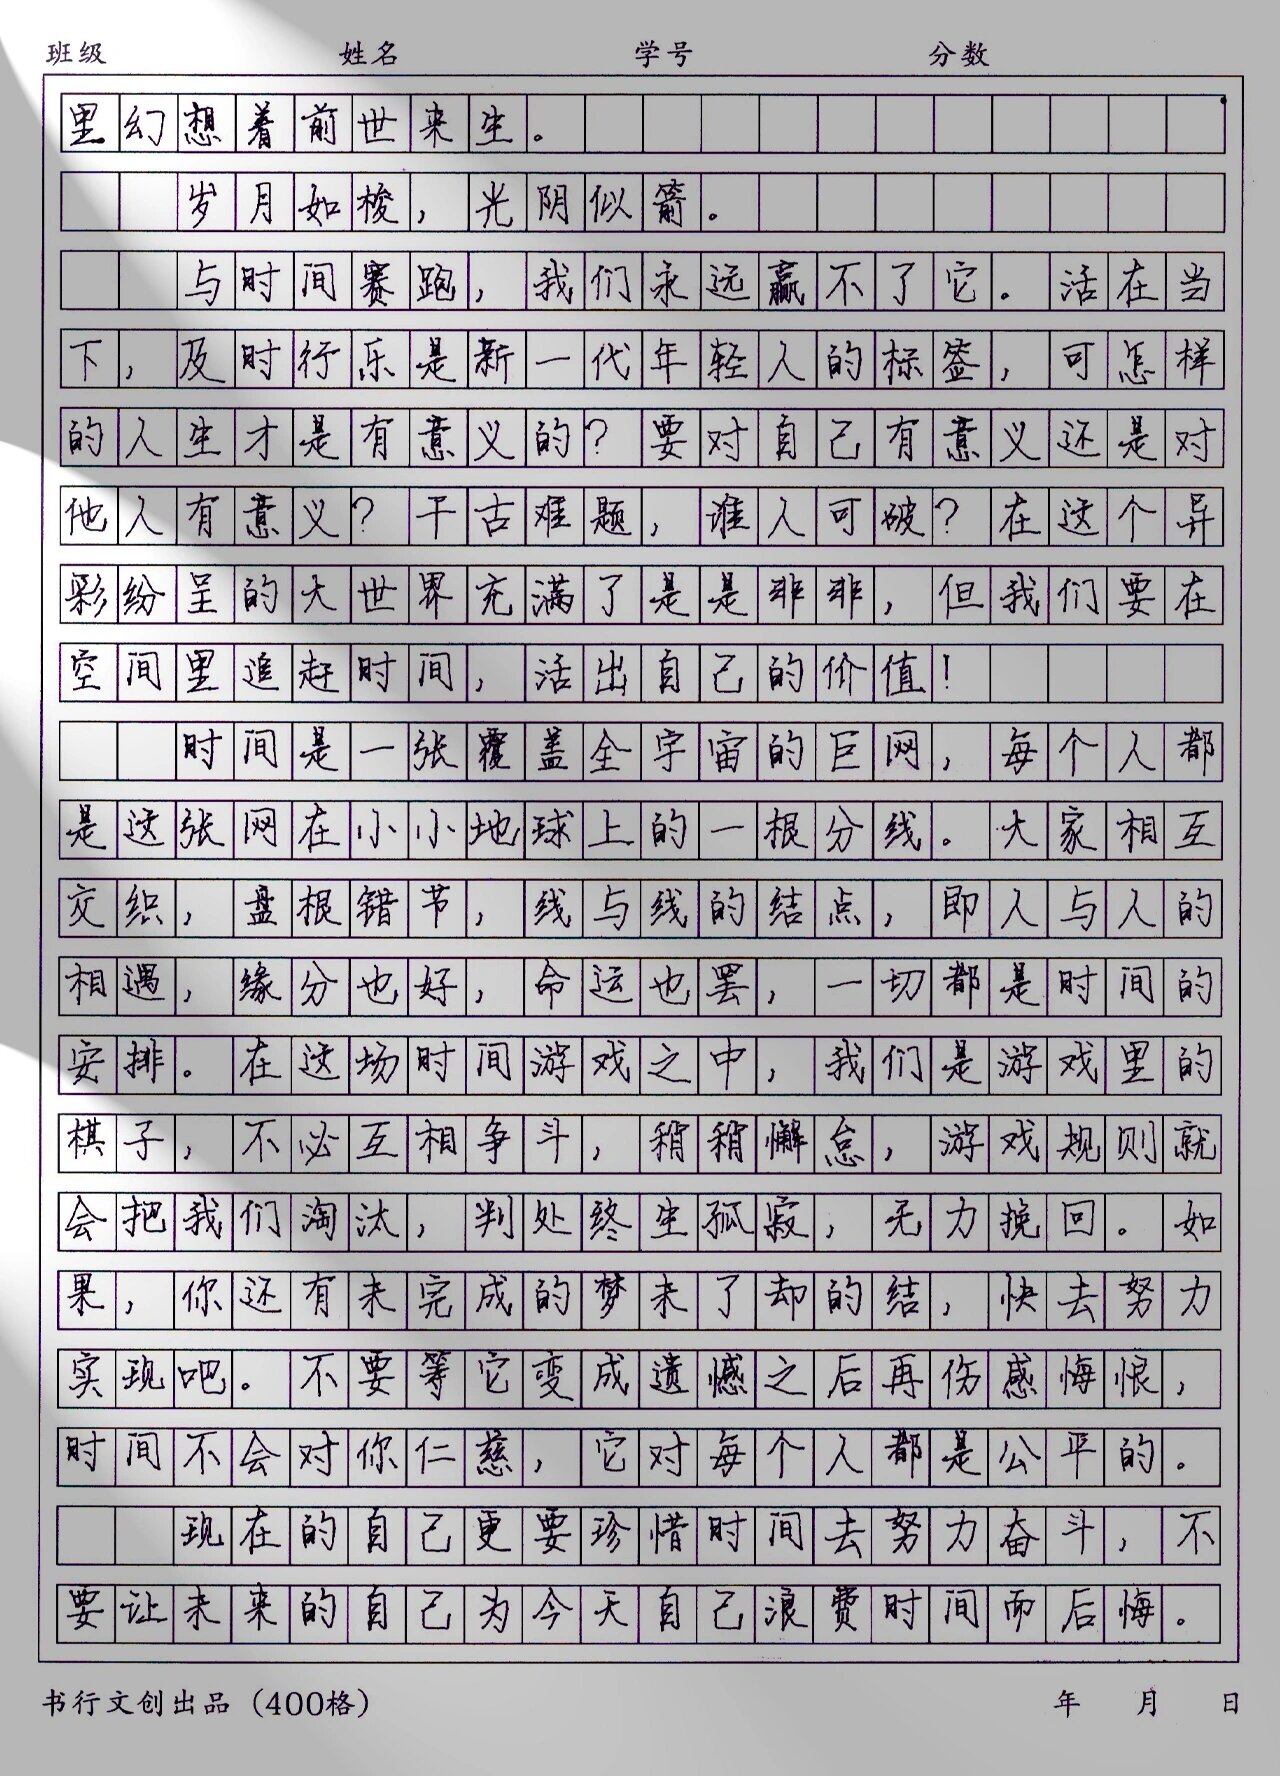 班级 姓名 学号 分数
里幻想着前世来生。
岁月如梭，光阴似箭。
与时间赛跑，我们永远赢不了它。活在当
下，及时行乐是新一代年轻人的标签，可怎样
的人生才是有意义的？要对自己有意义还是对
他人有意义？千古难题，谁人可破？在这个异
彩纷呈的大世界充满了是是非非，但我们要在
空间里追赶时间，活出自己的价值！
时间是一张覆盖全宇宙的巨网，每个人都
是这张网在小小地球上的一根分线。大家相互
交织，盘根错节，线与线的结点，即人与人的
相遇，缘分也好，命运也罢，一切都是时间的
安排。在这场时间游戏之中，我们是游戏里的
棋子，不必互相争斗，稍稍懈怠，游戏规则就
会把我们淘汰，判处终生孤寂，无力挽回。如
果，你还有未完成的梦未了却的结，快去努力
实现吧。不要等它变成遗憾之后再伤感悔恨，
时间不会对你仁慈，它对每个人都是公平的。
现在的自己更要珍惜时间去努力奋斗，不
要让未来的自己为今天自己浪费时间而后悔。
书行文创出品（400格） 年 月 日